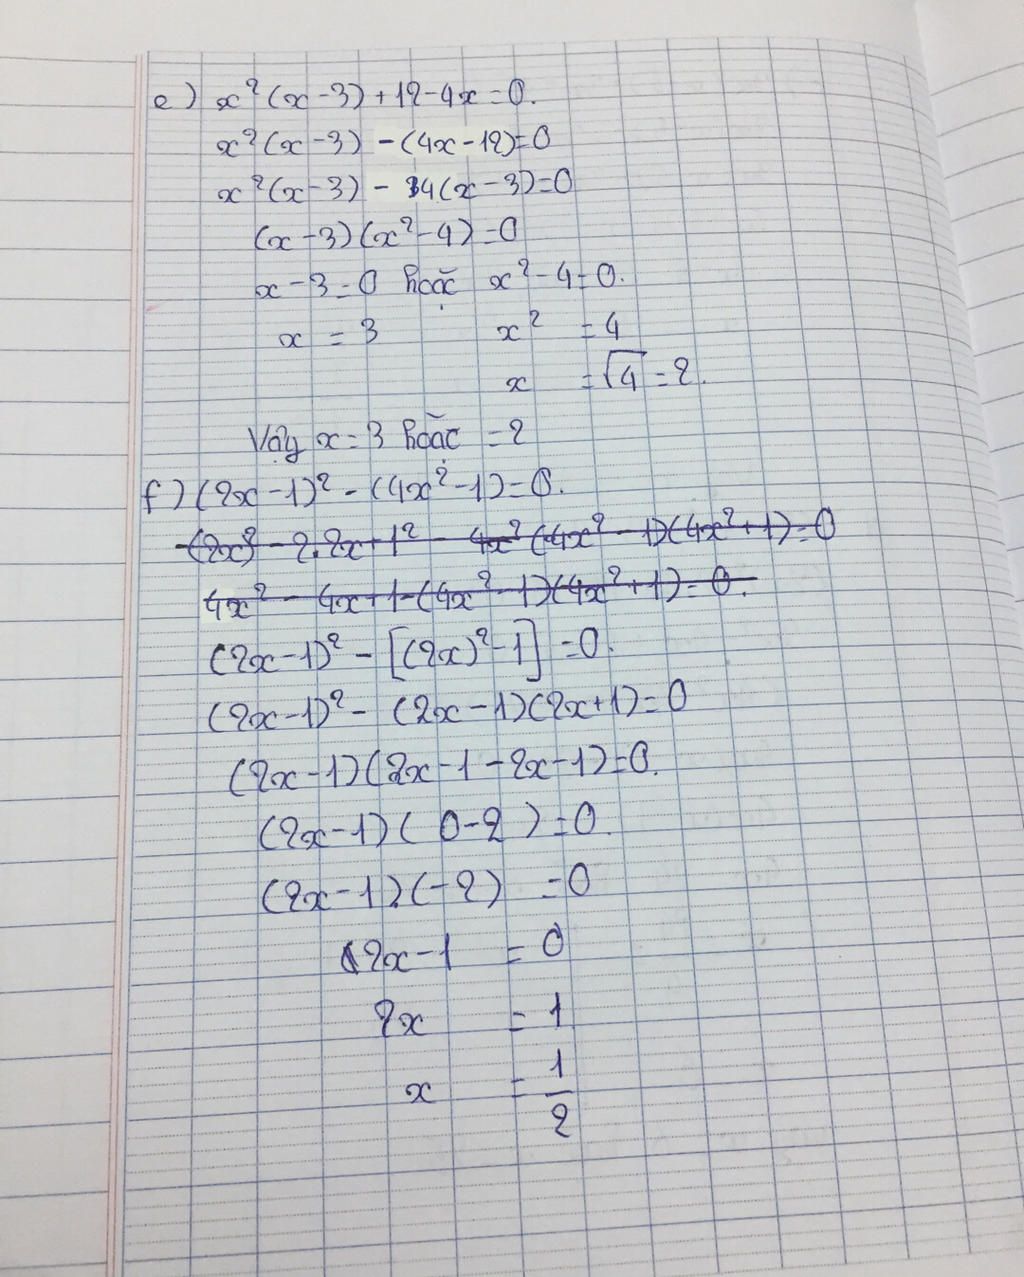 e) x²(x-3)+12-4x=0.
x²(x-3) -(4x-12)=0
x²(x-3) - 4(x-3)=0
(x-3)(x²-4)=0
x-3=0 hoặc x²-4=0.
x = 3 x² = 4
x = √4 = 2.
Vậy x=3 hoặc =2
f) (2x-1)²-(4x²-1)=0.
(2x)²-2.2x+1²- 4x² (4x²-1)(4x²+1)=0
4x²- 4x+1-(4x²-1)(4x²+1)=0.
(2x-1)²-[(2x)²-1] =0.
(2x-1)²- (2x-1)(2x+1)=0
(2x-1)(2x-1-2x-1)=0.
(2x-1)( 0-2 )=0.
(2x-1).(-2) =0
2x-1 = 0
2x = 1
x = 1/2